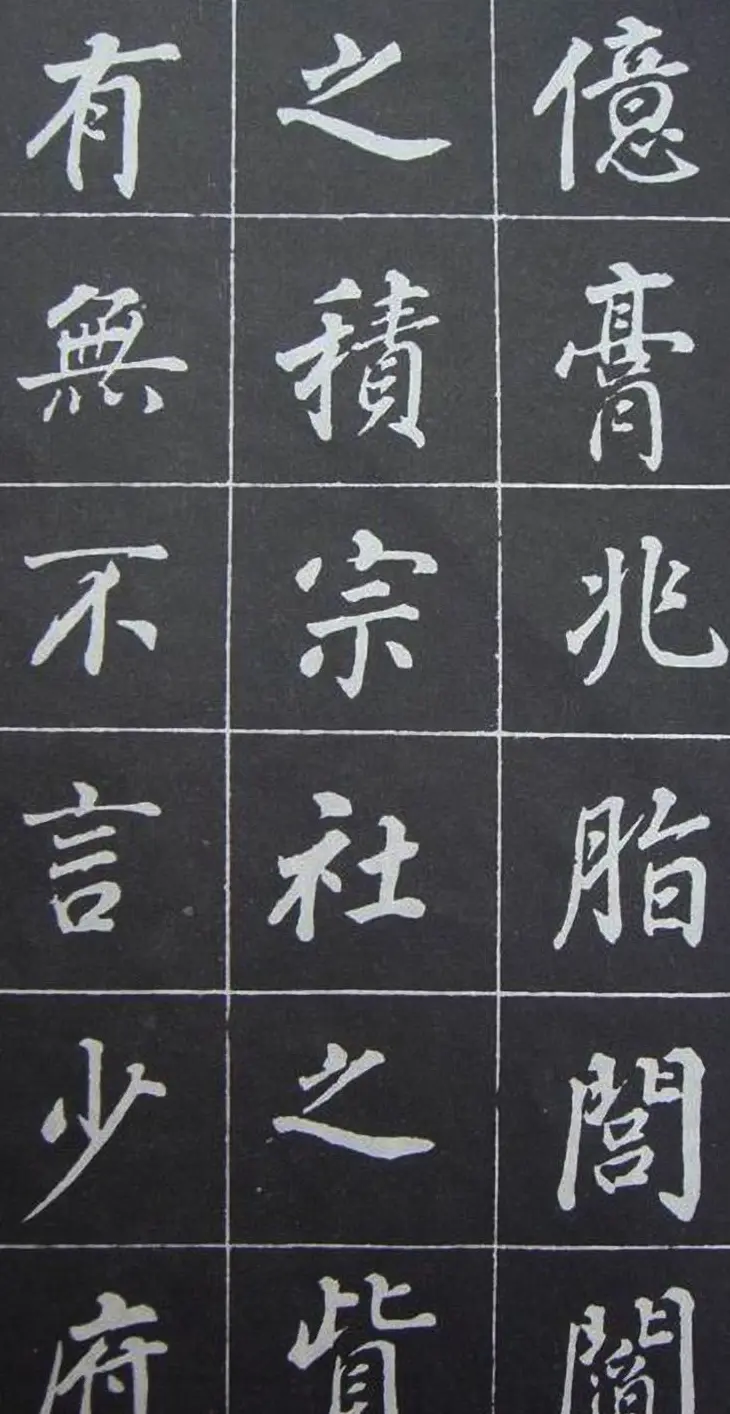 億膏兆脂閭閻
之積宗社之貲
有無不言少府